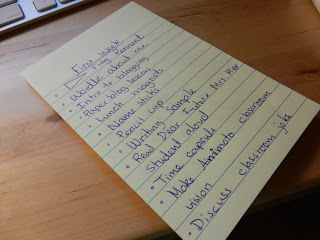 First Week
Pennant
• Wordle about me
• Intro to blogging
• Paper blog lesson
• Lunch magnets
• Name sticks
• Pencil cup
• Writing sample
• Read Dear Future Mrs.
student aloud
• Time capsule
• Make Animoto classroom
vision
• Discuss classroom jobs